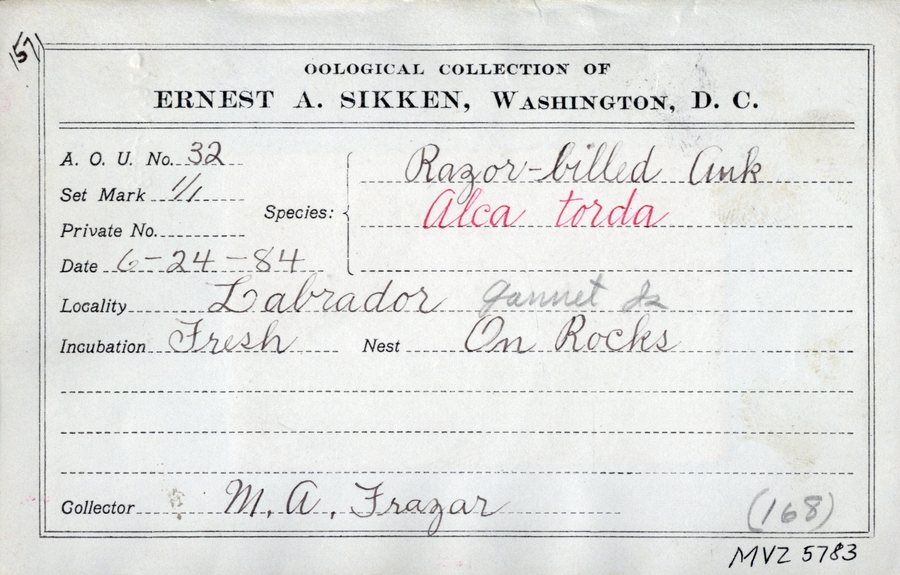 157
OOLOGICAL COLLECTION OF
ERNEST A. SIKKEN, WASHINGTON, D. C.
A. O. U. No. 32
Set Mark 1/1
Private No.
Date 6-24-84
Species: Razor-billed Auk
Alca torda
Locality Labrador Gannet Is
Incubation Fresh Nest On Rocks
Collector M. A. Frazar
(168)
MVZ 5783